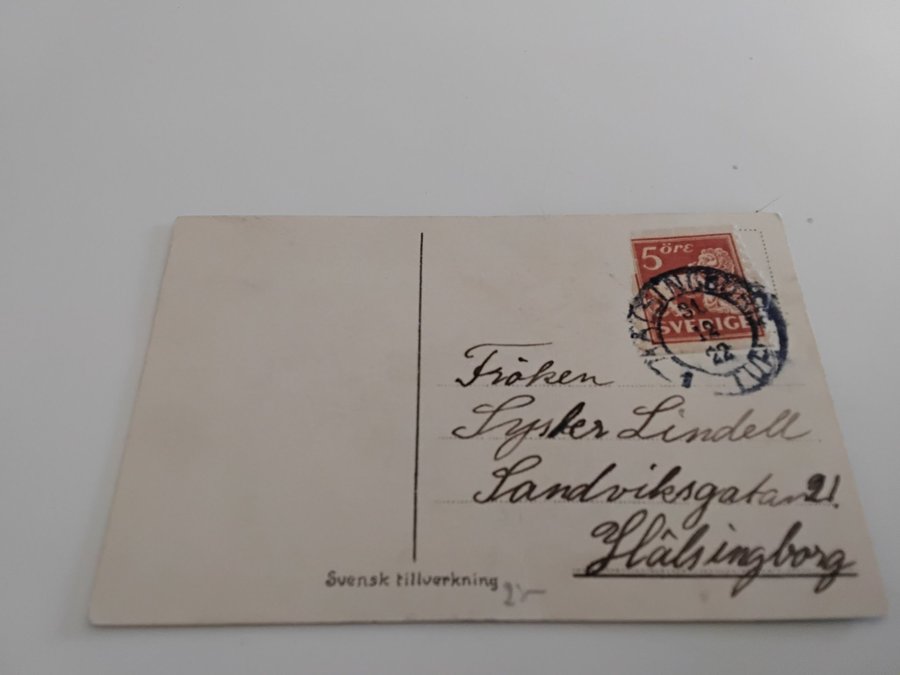 5 öre
SVERIGE
31
12
22
Fröken
Lindell
Sandviksgatan 21.
Hälsingborg
Svensk tillverkning